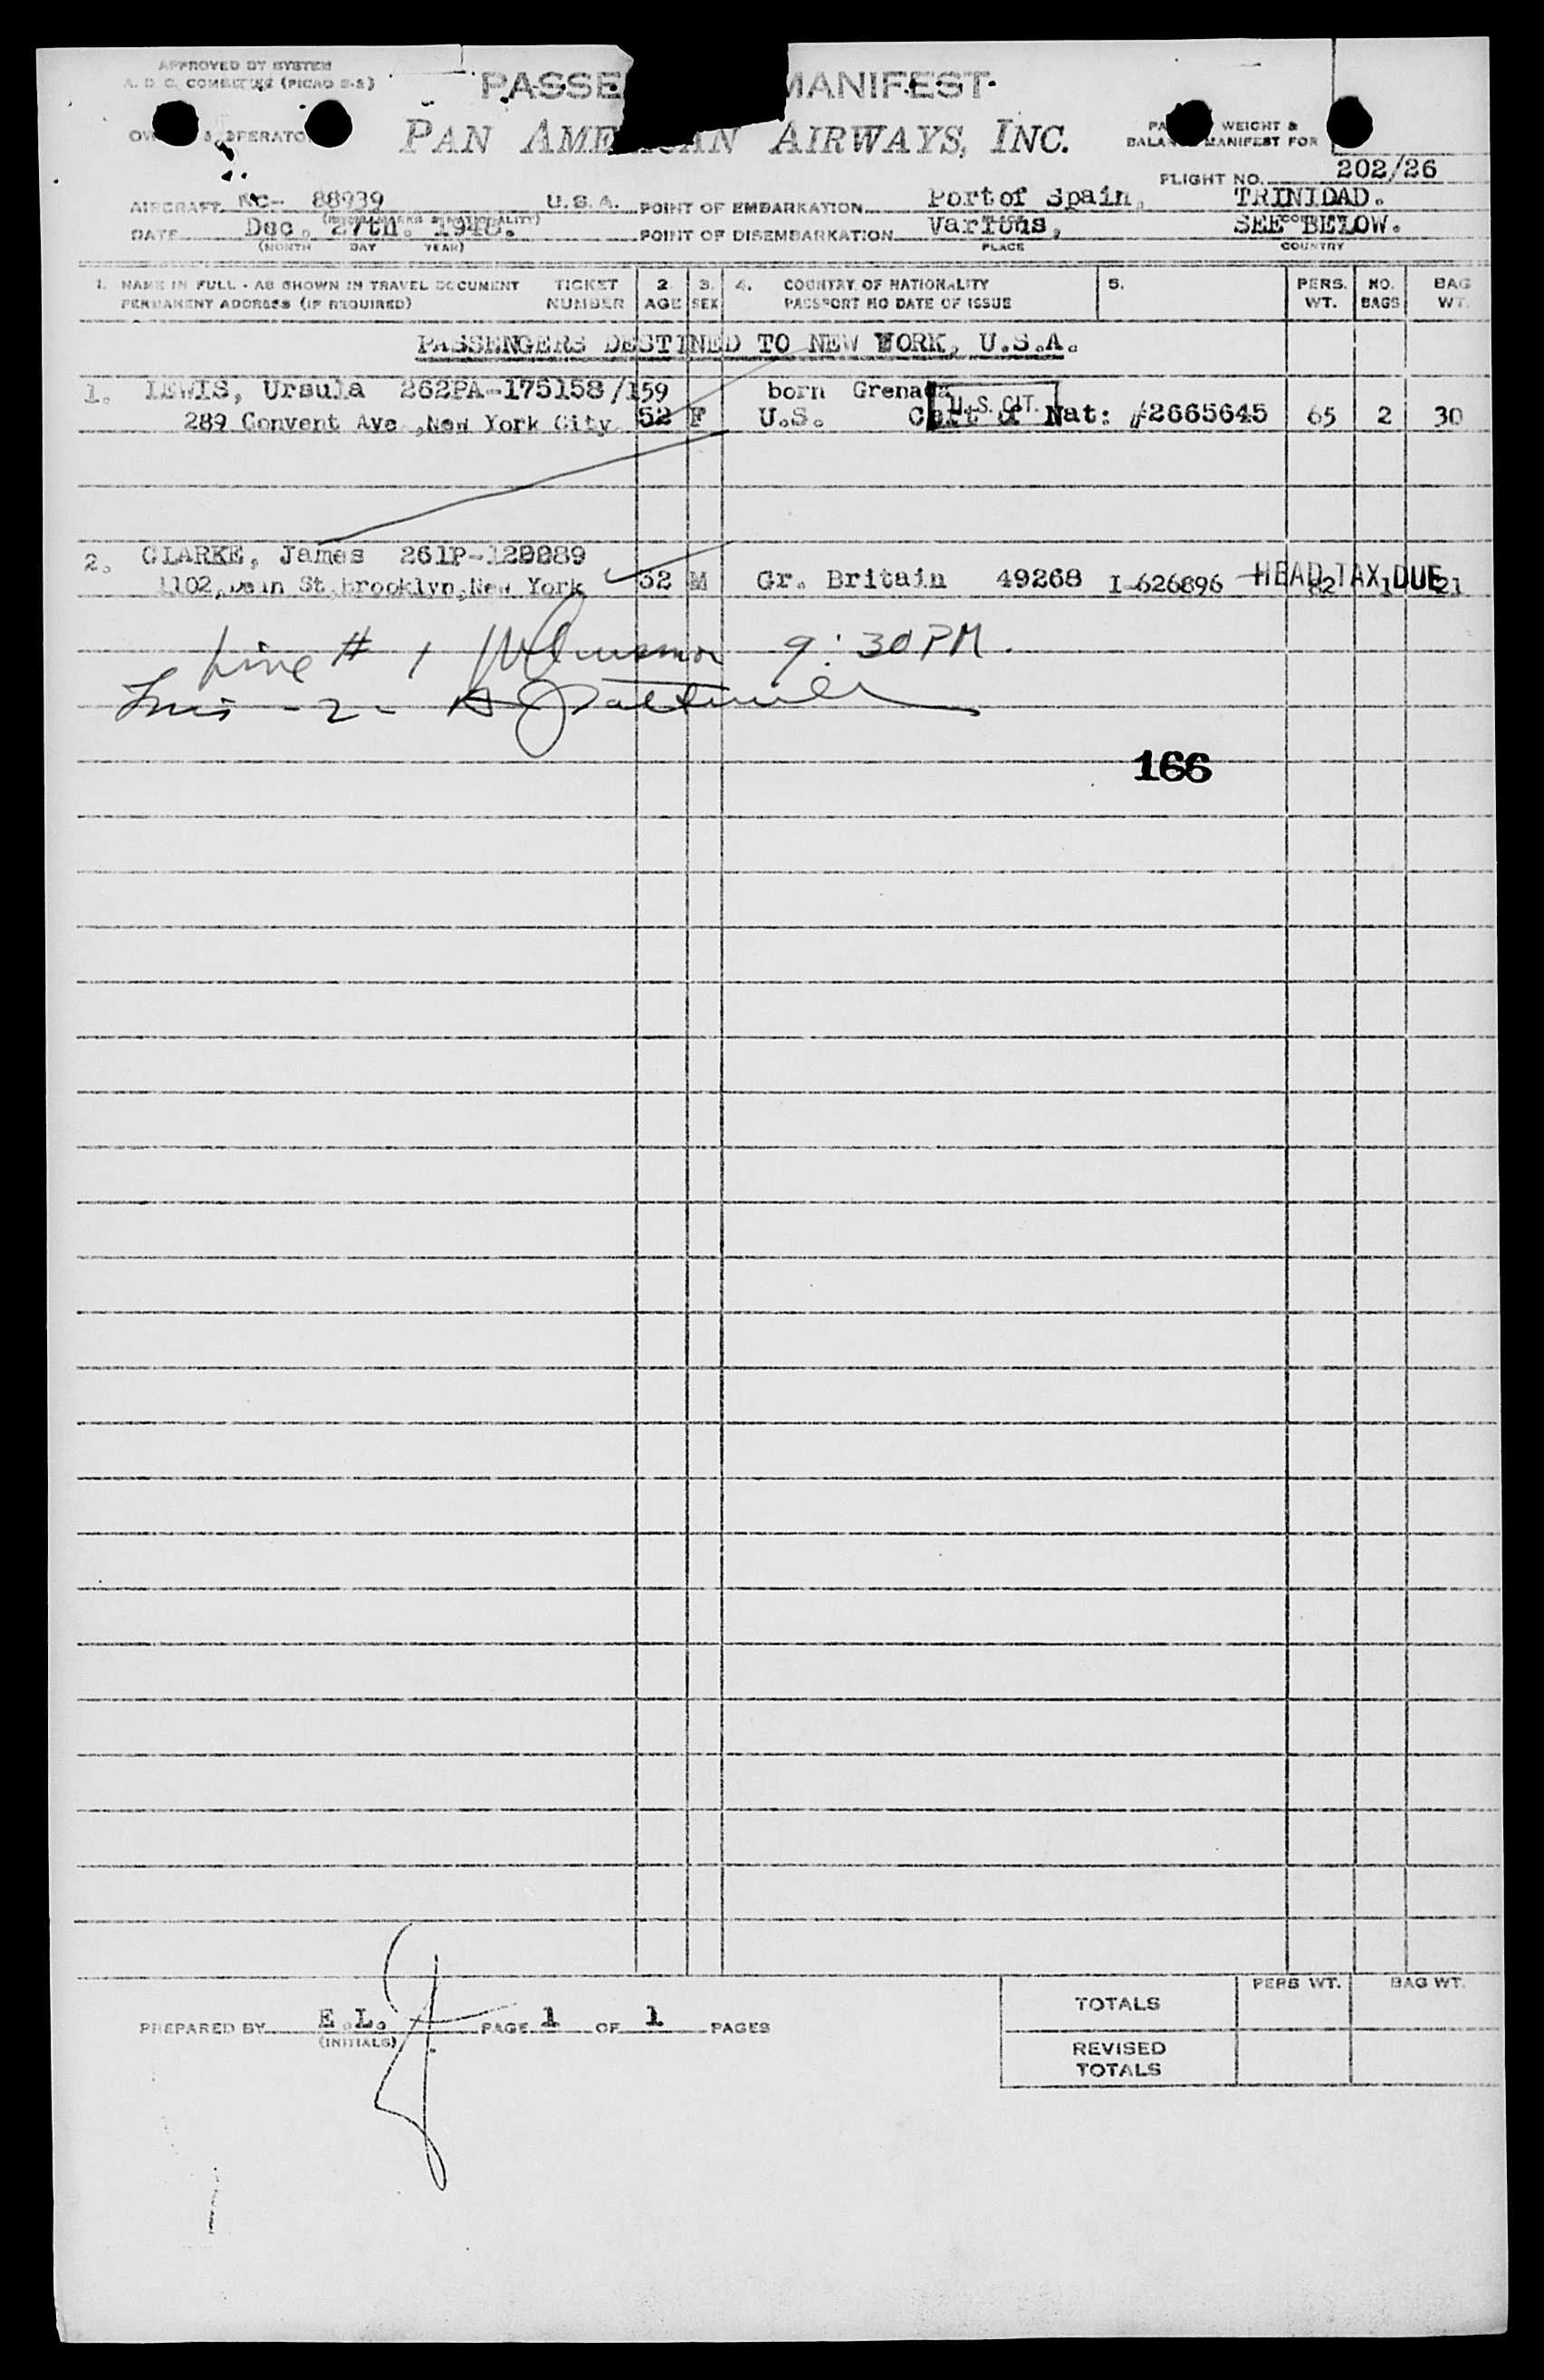 APPROVED BY SYSTEM
A. D. C. COMMITTEE (PICAO 2-2)
PASSE MANIFEST
PAN AMERICAN AIRWAYS, INC.
WEIGHT &
BALANCE MANIFEST FOR
FLIGHT NO. 202/26
AIRCRAFT NC- 88939 U.S.A. POINT OF EMBARKATION Port of Spain, TRINIDAD.
DATE Dec. 27th. 1948. POINT OF DISEMBARKATION Various, SEE BELOW.
(MONTH DAY YEAR) PLACE COUNTRY
1. NAME IN FULL - AS SHOWN IN TRAVEL DOCUMENT TICKET 2. 3. 4. COUNTRY OF NATIONALITY 5. PERS. NO. BAG
PERMANENT ADDRESS (IF REQUIRED) NUMBER AGE SEX PASSPORT NO DATE OF ISSUE WT. BAGS WT.
PASSENGERS DESTINED TO NEW YORK, U.S.A.
1. LEWIS, Ursula 262PA-175158/159 born Grenada U.S. CIT.
289 Convent Ave.,New York City. 52 F U.S. Cert of Nat: #2665645 65 2 30
2. CLARKE, James 261P-
1102, Dean St,Brooklyn,New York M Gr. Britain 49268 I-626896 HEAD TAX DUE 82 1 21
Line # 1 9:30 PM.
- 2 -
166
PREPARED BY E.L. PAGE 1 OF 1 PAGES
(INITIALS)
PERS WT. BAG WT.
TOTALS
REVISED
TOTALS